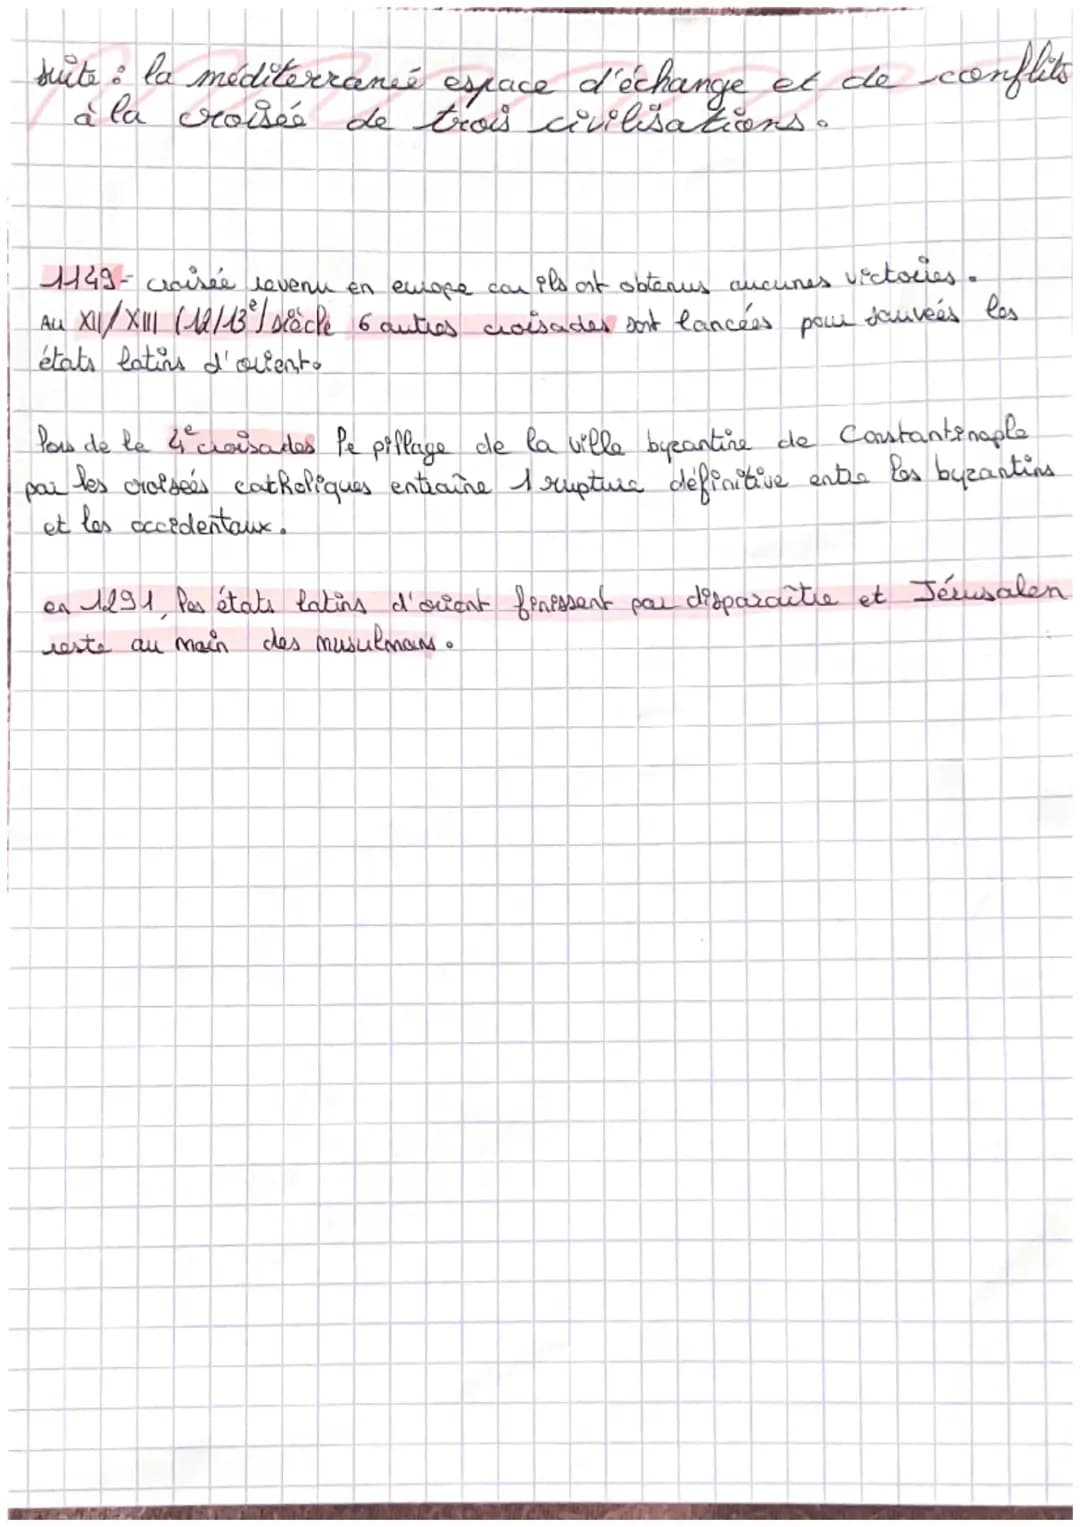 suite : la méditerraneé espace d'échange et de conflits
à la croiseé de trois civilisations.
1149- croisée revenu en europe car ils ont obtenus aucunes victoires.
Au XII/XIII (12/13e) siècle 6 autres croisades sont lancées pour sauveés les
états latins d'orient.
lors de le 4e croisades le pillage de la ville byzantine de Constantinople
par les croiseés catholiques entraîne 1 rupture définitive entre les byzantins
et les occidentaux.
en 1291, les états latins d'orient finissent par disparaître et Jérusalen
reste au main des musulmans.